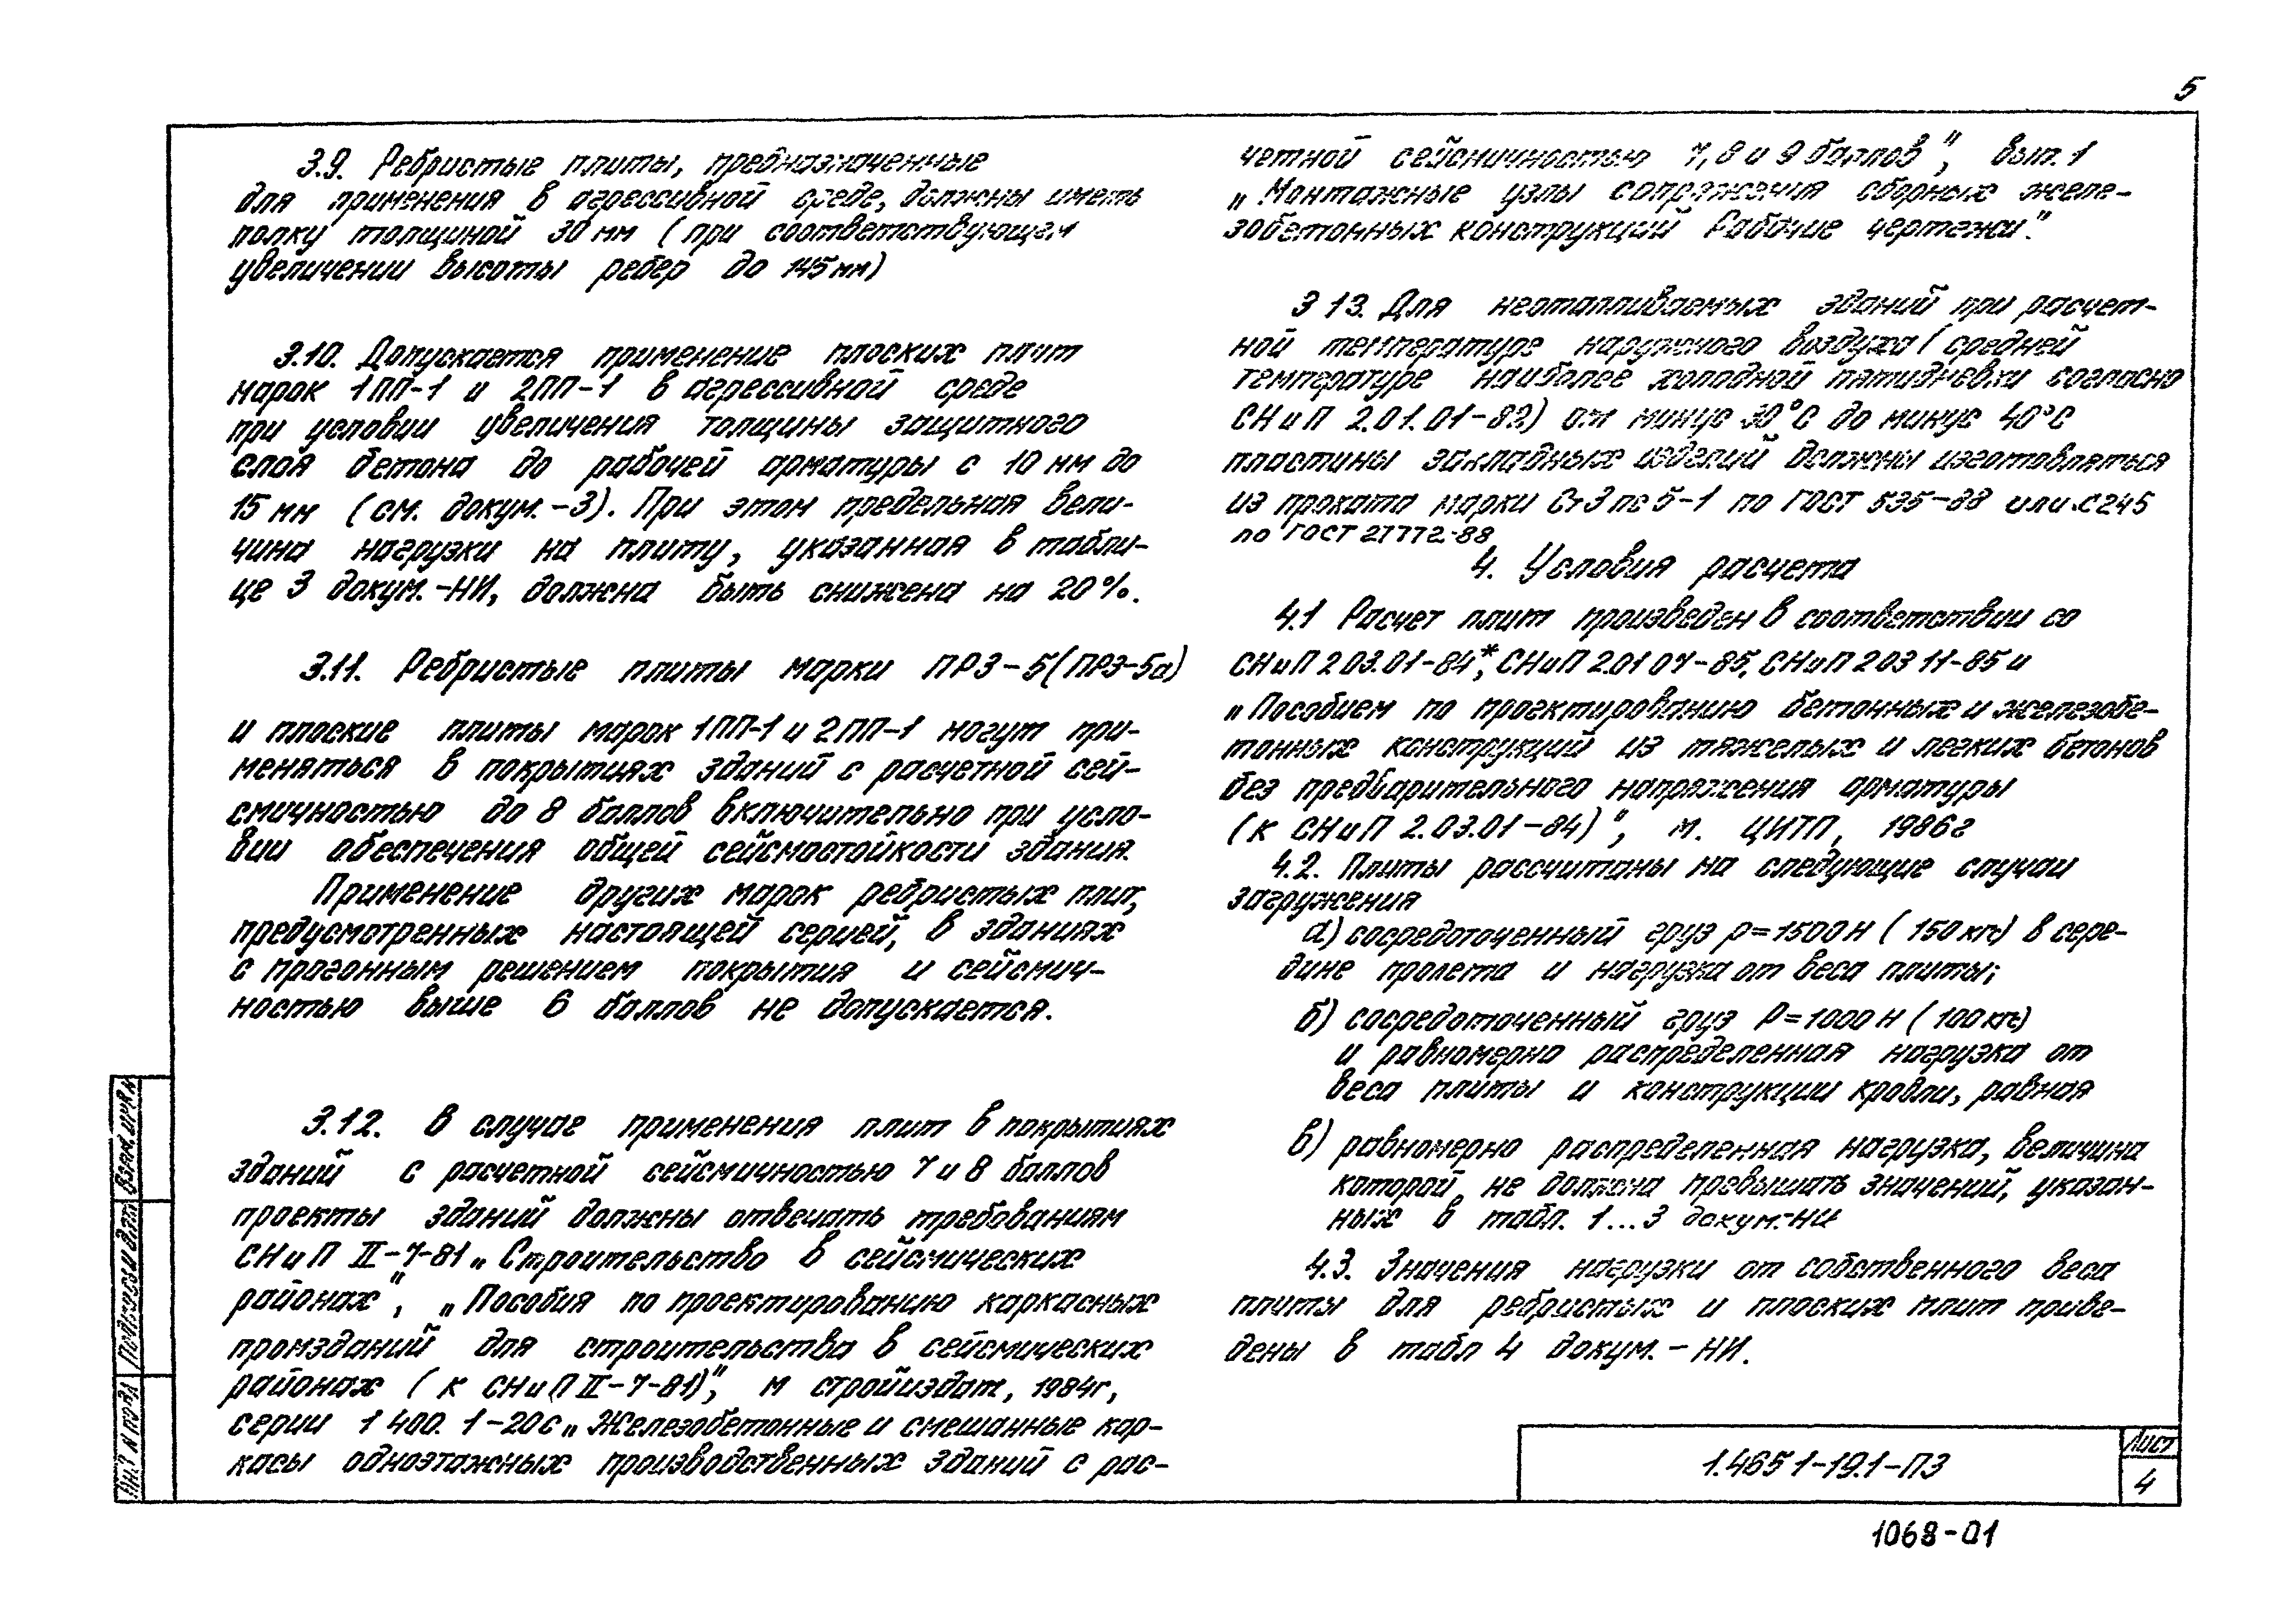 5
3.9. Ребристые плиты, предназначенные
для применения в агрессивной среде, должны иметь
полку толщиной 30 мм (при соответствующем
увеличении высоты ребер до 145 мм)
3.10. Допускается применение плоских плит
марок 1ПП-1 и 2ПП-1 в агрессивной среде
при условии увеличения толщины защитного
слоя бетона до рабочей арматуры с 10 мм до
15 мм (см. докум.-3). При этом предельная вели-
чина нагрузки на плиту, указанная в табли-
це 3 докум.-НИ, должна быть снижена на 20%.
3.11. Ребристые плиты марки ПР3-5(ПР3-5а)
и плоские плиты марок 1ПП-1 и 2ПП-1 могут при-
меняться в покрытиях зданий с расчетной сей-
смичностью до 8 баллов включительно при усло-
вии обеспечения общей сейсмостойкости здания.
Применение других марок ребристых плит,
предусмотренных настоящей серией, в зданиях
с прогонным решением покрытия и сейсмич-
ностью выше 6 баллов не допускается.
3.12. В случае применения плит в покрытиях
зданий с расчетной сейсмичностью 7 и 8 баллов
проекты зданий должны отвечать требованиям
СНиП II-7-81 „Строительство в сейсмических
районах", „Пособия по проектированию каркасных
промзданий для строительства в сейсмических
районах (к СНиП II-7-81)", М стройиздат, 1984г,
серии 1 400. 1-20с „Железобетонные и смешанные кар-
касы одноэтажных производственных зданий с рас-
четной сейсмичностью 7, 8 и 9 баллов", вып. 1
„Монтажные узлы сопряжения сборных желе-
зобетонных конструкций Рабочие чертежи".
3 13. Для неотапливаемых зданий при расчет-
ной температуре наружного воздуха (средней
температуре наиболее холодной пятидневки согласно
СНиП 2.01.01-82) от минус 30°С до минус 40°С
пластины закладных изделий должны изготовляться
из проката марки Ст3пс5-1 по ГОСТ 535-88 или С245
по ГОСТ 27772-88
4. Условия расчета
4.1 Расчет плит произведен в соответствии со
СНиП 2 03.01-84*, СНиП 2.01 07-85, СНиП 2 03 11-85 и
„Пособием по проектированию бетонных и железобе-
тонных конструкций из тяжелых и легких бетонов
без предварительного напряжения арматуры
(к СНиП 2.03.01-84)", М. ЦИТП, 1986г
4.2. Плиты рассчитаны на следующие случаи
загружения
а) сосредоточенный груз P=1500Н (150кгс) в сере-
дине пролета и нагрузка от веса плиты;
б) сосредоточенный груз P=1000Н (100кгс)
и равномерно распределенная нагрузка от
веса плиты и конструкции кровли, равная
в) равномерно распределенная нагрузка, величина
которой не должна превышать значений, указан-
ных в табл. 1...3 докум.-НИ
4.3. Значения нагрузки от собственного веса
плиты для ребристых и плоских плит приве-
дены в табл 4 докум.-НИ.
Взам. инв. №
Подпись и дата
Инв. № подл
1.465 1-19.1-ПЗ
Лист
4
1068-01